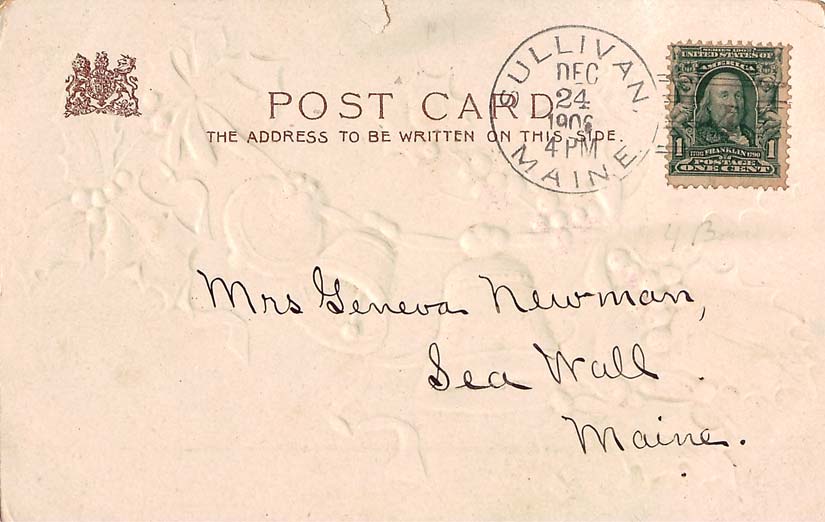 POST CARD
THE ADDRESS TO BE WRITTEN ON THIS SIDE.
SULLIVAN,
DEC
24
1906
4 PM
MAINE.
SERIES 1902
UNITED STATES OF
AMERICA
1706 FRANKLIN 1790
1 POSTAGE 1
ONE CENT
Mrs Geneva Newman,
Sea Wall.
Maine.